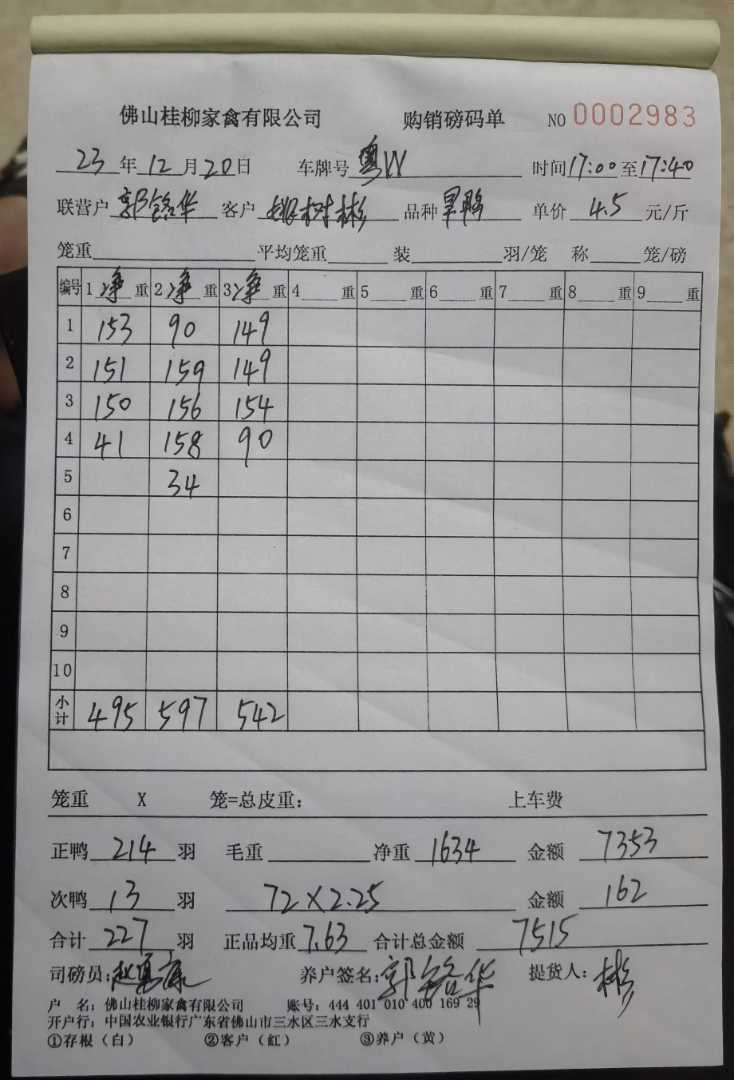 佛山桂柳家禽有限公司 购销磅码单 NO 0002983
23年12月20日 车牌号 粤W 时间17:00至17:40
联营户 郭铭华 客户 姚树彬 品种 果鸭 单价 4.5 元/斤
笼重 平均笼重 装 羽/笼 称 笼/磅
编号 1 净 重 2 净 重 3 净 重 4 重 5 重 6 重 7 重 8 重 9 重
1 153 90 149
2 151 159 149
3 150 156 154
4 41 158 90
5 34
6
7
8
9
10
小计 495 597 542
笼重 X 笼=总皮重: 上车费
正鸭 214 羽 毛重 净重 1634 金额 7353
次鸭 13 羽 72×2.25 金额 162
合计 227 羽 正品均重 7.63 合计总金额 7515
司磅员: 养户签名: 郭铭华 提货人: 彬
户 名: 佛山桂柳家禽有限公司 账号: 444 401 010 400 169 29
开户行: 中国农业银行广东省佛山市三水区三水支行
①存根（白） ②客户（红） ③养户（黄）